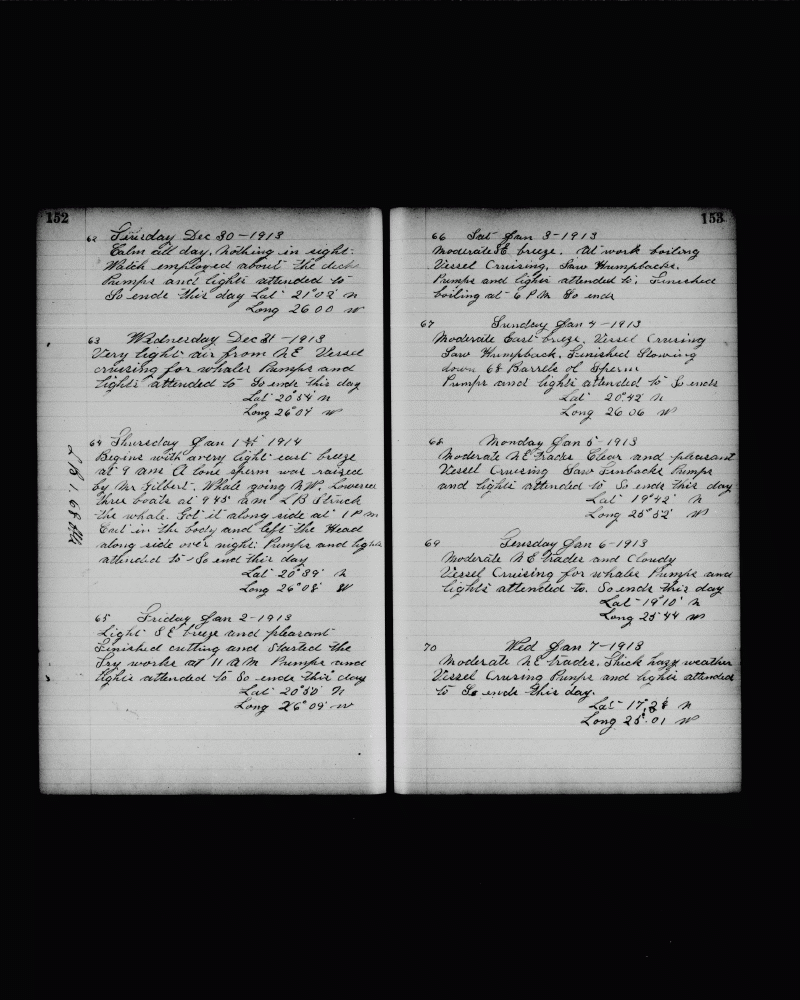 152
62 Tuesday Dec 30-1913
Calm all day. Nothing in sight.
Watch employed about the decks
Pumps and lights attended to
So ends this day Lat 21°02' N
Long 26 00 W
63 Wednesday Dec 31-1913
Very light air from NE Vessel
cruising for whales Pumps and
lights attended to So ends this day
Lat 20°54' N
Long 26°04' W
64 Thursday Jan 1st 1914
Begins with a very light east breeze
at 9 am A lone sperm was raised
by Mr Gilbert. Whale going NW. Lowered
three boats at 9 45 am LB Struck
the whale. Got it along side at 1 PM
Cut in the body and left the Head
along side over night. Pumps and lights
attended to So end this day
Lat 20°39' N
Long 26°08' W
LB 1. 68 bbl
65 Friday Jan 2-1913
Light SE breeze and pleasant
Finished cutting and started the
Try works at 11 AM Pumps and
lights attended to So ends this day
Lat 20°50' N
Long 26°09' W
153
66 Sat Jan 3-1913
Moderate SE breeze. At work boiling
Vessel Cruising. Saw Humpbacks.
Pumps and lights attended to. Finished
boiling at 6 PM So ends
67 Sunday Jan 4-1913
Moderate East breeze. Vessel Cruising
Saw Humpback. Finished Stowing
down 68 Barrels of Sperm
Pumps and lights attended to So ends
Lat 20°42' N
Long 26 06 W
68 Monday Jan 5-1913
Moderate NE trades Clear and pleasant
Vessel Cruising Saw Finbacks Pumps
and lights attended to So ends this day
Lat 19°42' N
Long 25°52' W
69 Tuesday Jan 6-1913
Moderate NE trades and Cloudy
Vessel Cruising for whales Pumps and
lights attended to. So ends this day
Lat 19°10' N
Long 25°44 W
70 Wed Jan 7-1913
Moderate NE trades. Thick hazy weather
Vessel Cruising Pumps and lights attended
to So ends this day.
Lat 17°28' N
Long 25°.01 W